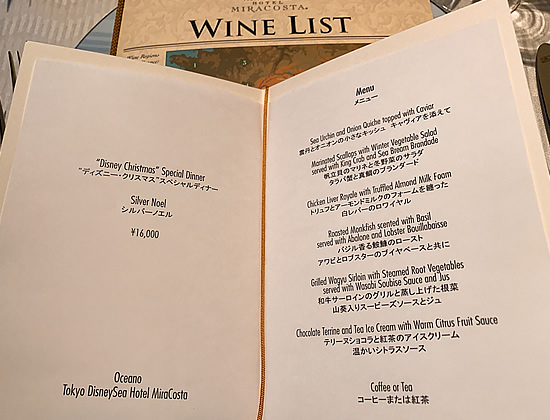 HOTEL
MIRACOSTA
WINE LIST
Wine Regions
"Disney Christmas" Special Dinner
"ディズニー・クリスマス"スペシャルディナー
Silver Noel
シルバーノエル
¥16,000
Oceano
Tokyo DisneySea Hotel MiraCosta
Menu
メニュー
Sea Urchin and Onion Quiche topped with Caviar
雲丹とオニオンの小さなキッシュ キャヴィアを添えて
Marinated Scallops with Winter Vegetable Salad
served with King Crab and Sea Bream Brandade
帆立貝のマリネと冬野菜のサラダ
タラバ蟹と真鯛のブランダード
Chicken Liver Royale with Truffled Almond Milk Foam
トリュフとアーモンドミルクのフォームを纏った
白レバーのロワイヤル
Roasted Monkfish scented with Basil
served with Abalone and Lobster Bouillabaisse
バジル香る鮟鱇のロースト
アワビとロブスターのブイヤベースと共に
Grilled Wagyu Sirloin with Steamed Root Vegetables
served with Wasabi Soubise Sauce and Jus
和牛サーロインのグリルと蒸し上げた根菜
山葵入りスービーズソースとジュ
Chocolate Terrine and Tea Ice Cream with Warm Citrus Fruit Sauce
テリーヌショコラと紅茶のアイスクリーム
温かいシトラスソース
Coffee or Tea
コーヒーまたは紅茶